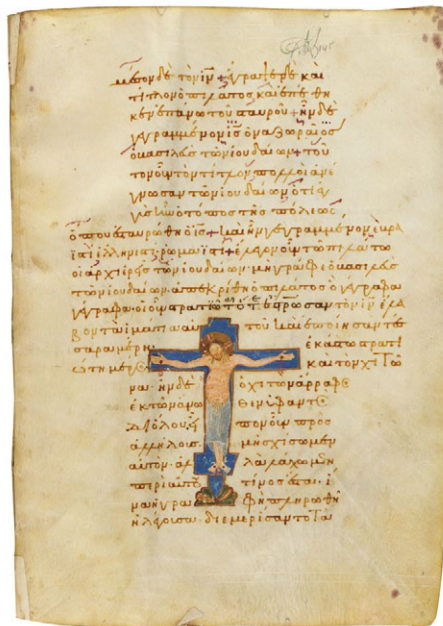 μέσον δὲ τὸν ιν + ἔγραψε δὲ καὶ
τίτλον ὁ πιλάτος καὶ ἔθη
κεν ἐπάνω τοῦ σταυροῦ + ἦν δὲ
γεγραμμένον ις ὁ ναζωραῖος
ὁ βασιλεὺς τῶν ἰουδαίων + τοῦ
τον οὖν τὸν τίτλον πολλοὶ ἀνέ
γνωσαν τῶν ἰουδαίων ὅτι ἐγ
γὺς ἦν ὁ τόπος τῆς πόλεως
ὅπου ἐσταυρώθη ὁ ις + καὶ ἦν γεγραμμένον ἑβρα
ϊστὶ ἑλληνιστὶ ρωμαϊστί + ἔλεγον οὖν τῶ πιλάτω
οἱ ἀρχιερεῖς τῶν ἰουδαίων· μὴ γράφε ὁ βασιλεὺς
τῶν ἰουδαίων· ἀπεκρίθη ὁ πιλάτος ὃ γέγραφα
γέγραφα· οἱ οὖν στρατιῶται ὅτε ἐσταύρωσαν τὸν ιν ἔλα
βον τὰ ἱμάτια αὐτοῦ καὶ ἐποίησαν τέσ
σαρα μέρη ἑκάστω στρατι
ώτη μέρος καὶ τὸν χιτῶ
να· ἦν δὲ ὁ χιτὼν ἄρραφο
ἐκ τῶν ἄνωθεν ὑφαντὸ
δι' ὅλου· εἶπον οὖν πρὸς
ἀλλήλους· μὴ σχίσωμεν
αὐτόν· ἀλλὰ λάχωμεν
περὶ αὐτοῦ τίνος ἔσται· ἵ
να ἡ γραφὴ πληρωθῆ
ἡ λέγουσα· διεμερίσαντο τὰ